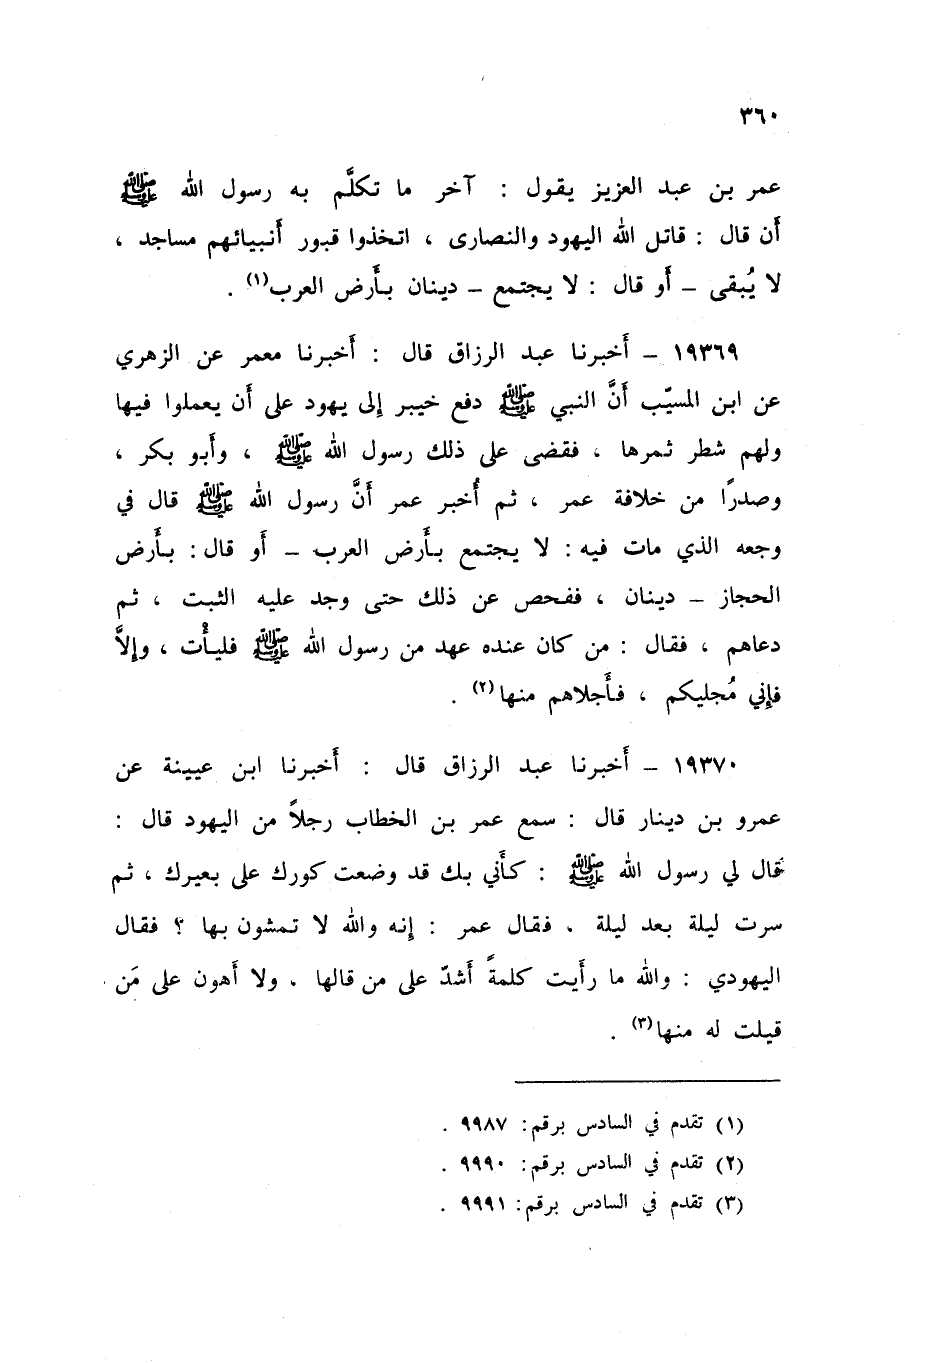 ٣٦٠
عمر بن عبد العزيز يقول : آخر ما تكلَّم به رسول الله ﷺ
أَن قال : قاتل الله اليهود والنصارى ، اتخذوا قبور أَنبيائهم مساجد ،
لا يُبقى – أَو قال : لا يجتمع – دينان بأَرض العرب(١) .
١٩٣٦٩ – أَخبرنا عبد الرزاق قال : أَخبرنا معمر عن الزهري
عن ابن المسيّب أَنَّ النبي ﷺ دفع خيبر إلى يهود على أَن يعملوا فيها
ولهم شطر ثمرها ، فقضى على ذلك رسول الله ﷺ ، وأَبو بكر ،
وصدرًا من خلافة عمر ، ثم أُخبر عمر أَنَّ رسول الله ﷺ قال في
وجعه الذي مات فيه : لا يجتمع بأَرض العرب – أَو قال : بأَرض
الحجاز – دينان ، ففحص عن ذلك حتى وجد عليه الثبت ، ثم
دعاهم ، فقال : من كان عنده عهد من رسول الله ﷺ فليأْت ، وإلاَّ
فإني مُجليكم ، فأَجلاهم منها(٢) .
١٩٣٧٠ – أَخبرنا عبد الرزاق قال : أَخبرنا ابن عيينة عن
عمرو بن دينار قال : سمع عمر بن الخطاب رجلاً من اليهود قال :
قال لي رسول الله ﷺ : كأَني بك قد وضعت كورك على بعيرك ، ثم
سرت ليلة بعد ليلة ، فقال عمر : إنه والله لا تمشون بها ؟ فقال
اليهودي : والله ما رأَيت كلمةً أَشدّ على من قالها ، ولا أَهون على مَن
قيلت له منها(٣) .
(١) تقدم في السادس برقم: ٩٩٨٧ .
(٢) تقدم في السادس برقم: ٩٩٩٠ .
(٣) تقدم في السادس برقم: ٩٩٩١ .